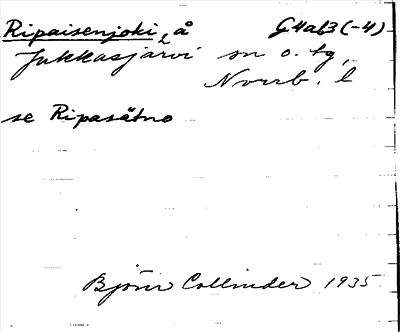 Ripaisenjoki, å G4ab3(-4)
Jukkasjärvi sn o. tg,
Norrb. l
se Ripasätno
Björn Collinder 1935